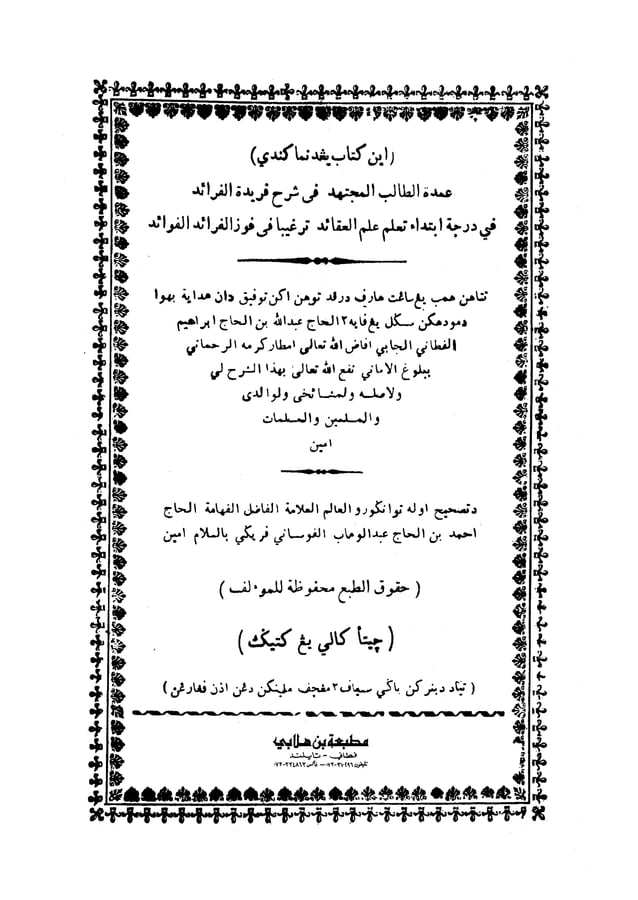 (اين كتاب يڠدنماكندي)
عمدة الطالب المجتهد فى شرح فريدة الفرائد
في درجة ابتداء تعلم علم العقائد ترغيبا فى فوز الفرائد الفوائد
تتاهن همب يڠ ساڠت هارف درفد توهن اكن توفيق دان هداية بهوا
دمودهكن سكل يڠ فايه٢ الحاج عبدالله بن الحاج ابراهيم
الفطاني الجابي افاض الله تعالى امطار كرمه الرحماني
ببلوغ الاماني نفع الله تعالى بهذا الشرح لي
ولاصله ولمشائخى ولوالدى
والمسلمين والمسلمات
امين
دتصحيح اوله توانكورو العالم العلامة الفاضل الفهامة الحاج
احمد بن الحاج عبدالوهاب الفوساني فريكي بالسلام امين
(حقوق الطبع محفوظة للموءلف)
(چيتأ كالي يڠ كتيݢ)
(تياد دبنركن باكي سياف٢ مڠچف ملينكن دڠن اذن فڠارڠن)
مطبعة بن هلابي
فطاني - تايلند